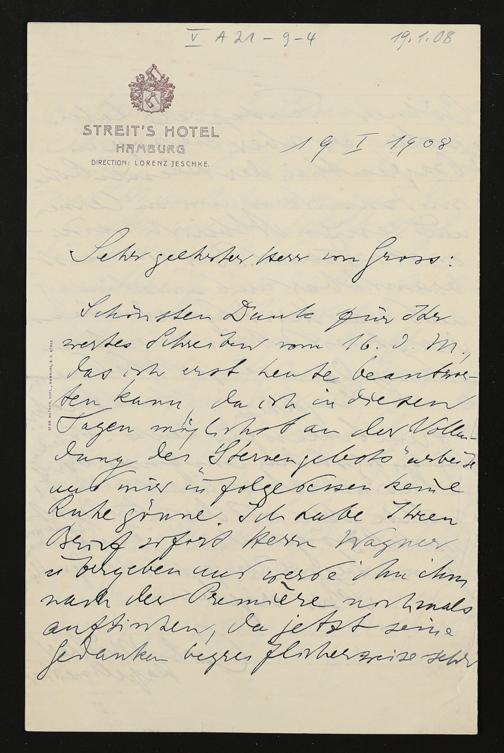 V A 21 - 9 - 4
19.1.08
STREIT'S HOTEL
HAMBURG
DIRECTION: LORENZ JESCHKE.
19 I 1908
Sehr geehrter Herr von Gross:
Schönsten Dank für Ihr
wertes Schreiben vom 16. d. M.,
das ich erst heute beantwor-
ten kann, da ich in diesen
Tagen möglichst an der Vollen-
dung des "Sternengebots" arbeite
und mir infolgedessen keine
Ruhe gönne. Ich habe Ihren
Brief sofort Herrn Wagner
übergeben und werde ihn ihm
nach der Première nochmals
auftischen, da jetzt seine
Gedanken begreiflicherweise sehr